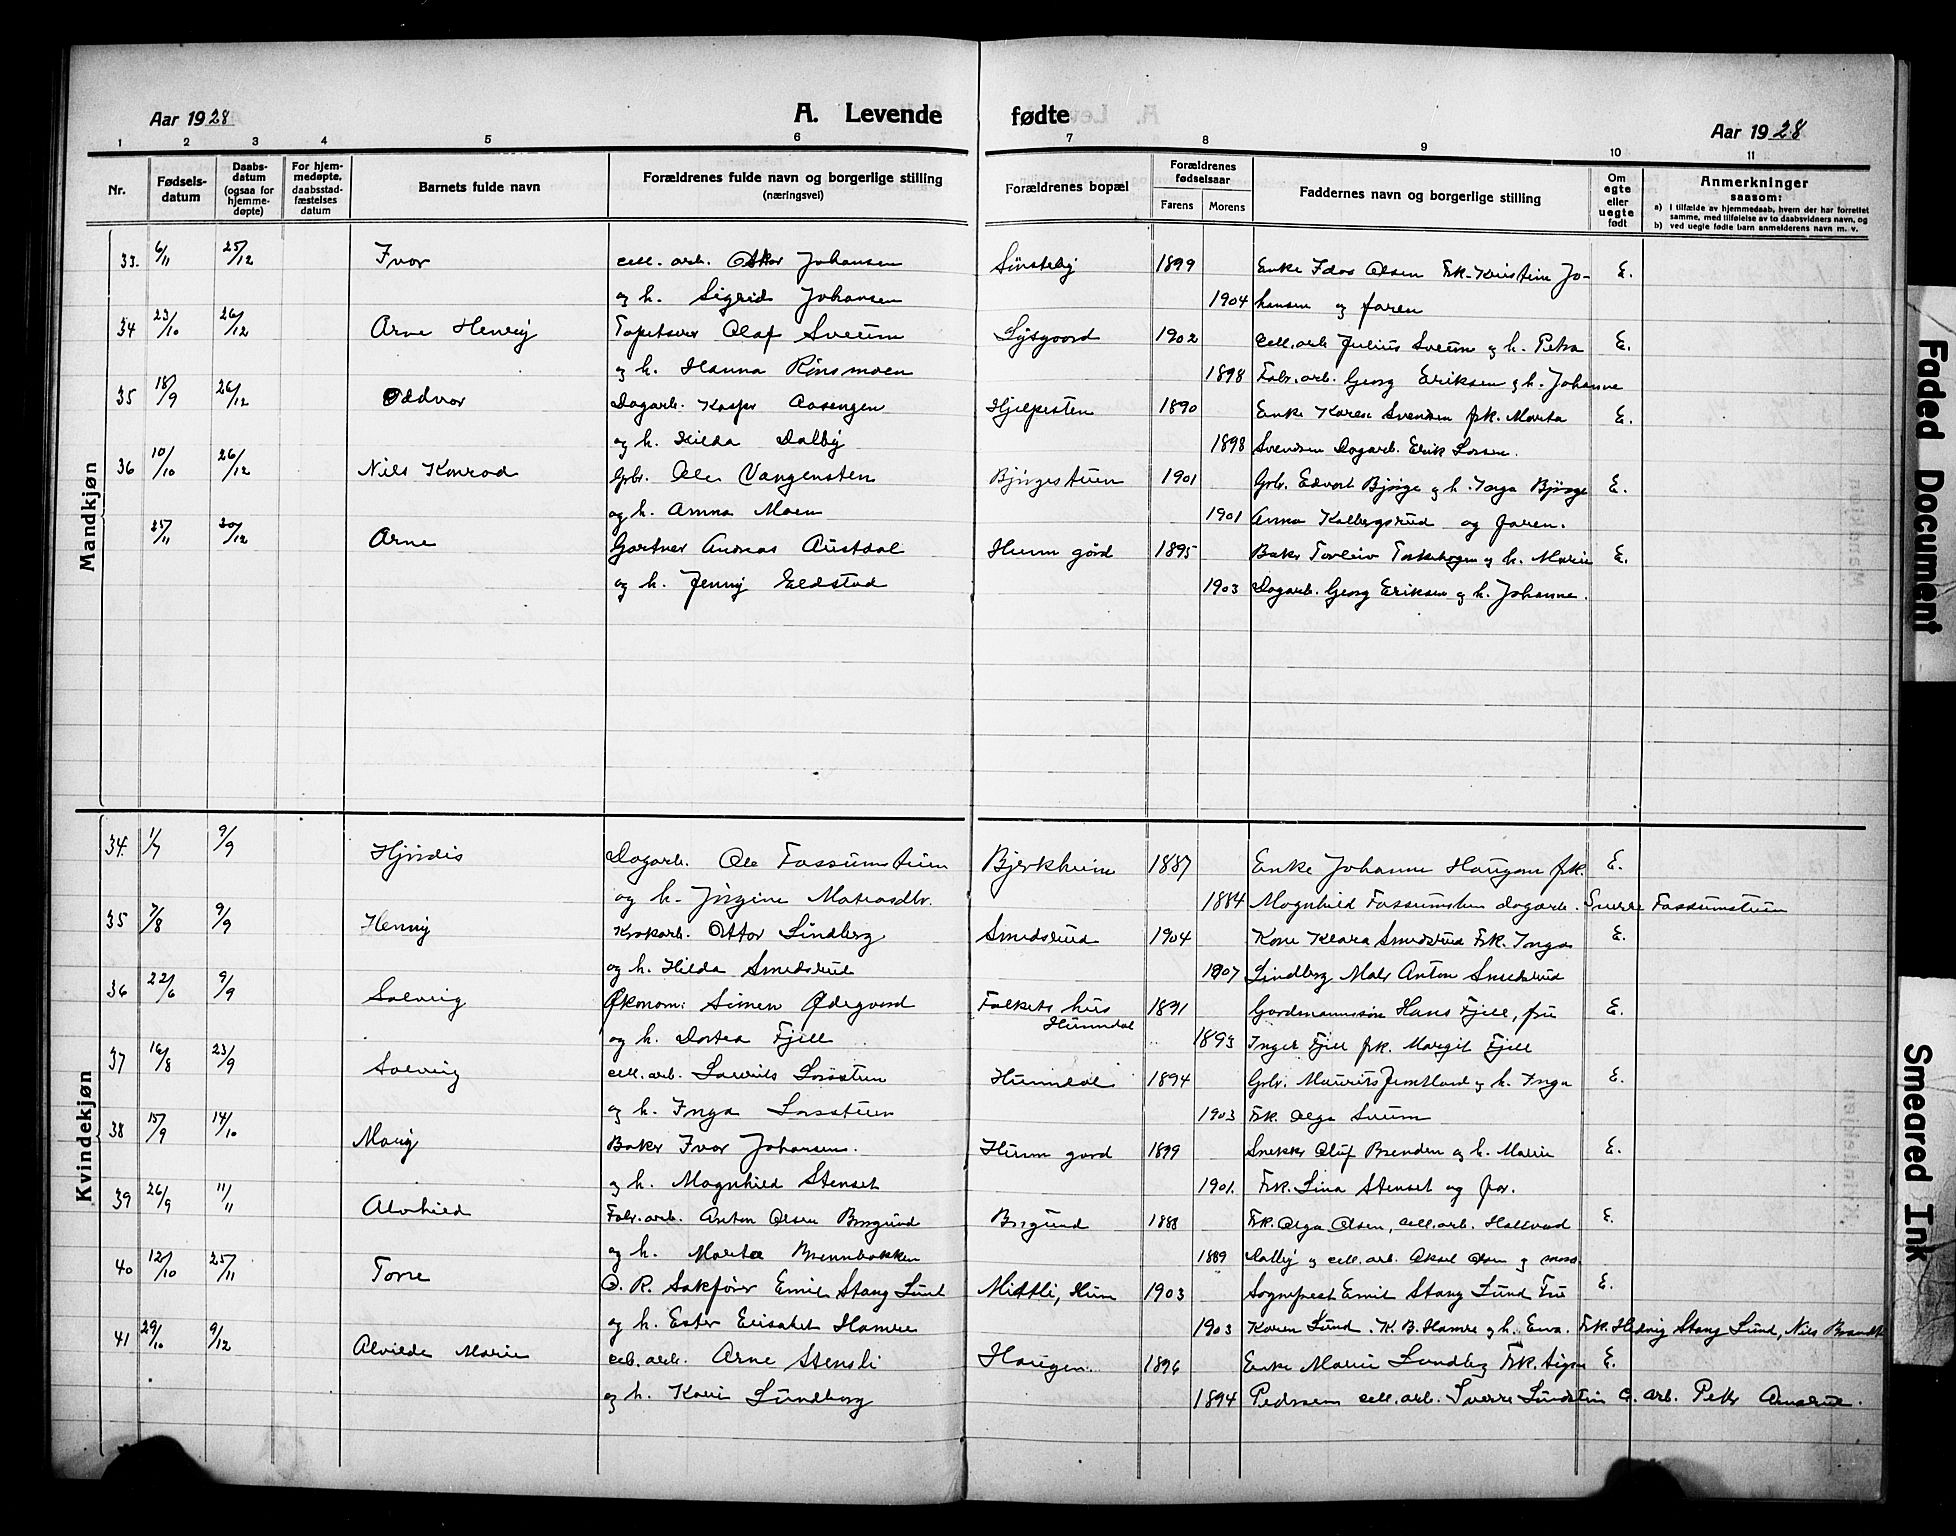 Aar 1928 A. Levende fødte Aar 1928
1 2 3 4 5 6 7 8 9 10 11
Nr. Fødselsdatum Daabsdatum (ogsaa for hjemmedøpte) For hjemmedøpte, daabsstadfæstelses datum Barnets fulde navn Forældrenes fulde navn og borgerlige stilling (næringsvei) Forældrenes bopæl Forældrenes fødselsaar Farens Morens Faddernes navn og borgerlige stilling Om egte eller uegte født Anmerkninger saasom:
a) I tilfælde av hjemmedaab, hvem der har forrettet samme, med tilføielse av to daabsvidners navn, og
b) ved uegte fødte barn anmelderens navn m. v.
Mandkjøn
33. 6/11 25/12 Ivar cell. arb. Johansen 1899 Enke Olsen Frk. Kristine Jo- E.
og h. Sigrid Johansen 1904 hansen og faren
34 23/10 26/12 Arne Henry Tapetserer Olaf Sveum Lysgaard 1902 cell. arb Julius Sveum og h. Petra E.
og h. Hanna Rønsmoen 1898 Fabr. arb. Georg Eriksen og h. Johanne
35 18/9 26/12 Oddvar Dagarb. Kasper Aasengen 1890 Enke Karen Svendsen frk. Marta E.
og h. Hilda Dalby 1898 Svendsen Dagarb. Erik
36 10/10 26/12 Nils Konrad Grbr. Ole Vangensten Bjørgestuen 1901 Grbr. Edvart Bjørge og h. Inga Bjørge E.
og h. Anna Moen 1901 Anna Kalbergsrud og faren.
25/11 30/12 Arne Gartner Andreas Austdal Hunn gård 1895 Baker og h. Marie E.
og h. Jenny Eldstad 1903 Dagarb. Georg Eriksen og h. Johanne.
Kvindekjøn
34. 1/7 9/9 Hjørdis Dagarb. Ole Fossumstuen Bjerkheim 1887 Enke Johanne Haugom frk. E.
og h. Jørgine 1884 Magnhild Fossumstuen dagarb. Sverre Fossumstuen
35 7/8 9/9 Henny Lindberg Smedsrud 1904 Kone Klara Smedsrud Frk. Inga E.
og h. Hilda Smedsrud 1907 Lindberg Maler Anton Smedsrud
36 22/6 9/9 Solveig Økonom: Simen Ødegaard Folkets hus Hunndal 1891 Gardmannssøn Hans Fjell, fru E.
og h. Dortea Fjell 1893 Inger Fjell frk. Margit Fjell
37 16/8 23/9 Solveig cell. arb. Laurits Hunndal 1894 Grbr. Maurits og h. Inga E.
og h. Inga 1903 Frk. Olga Sveum
38 15/9 14/10 Mary Baker Ivar Johansen. Hunn gard 1899 Snekker Oluf Brenden og h. Marie E.
og h. Magnhild Stenset 1901. Frk. Lina Stenset og far.
39 26/9 11/11 Alvhild Fabr. arb. Anton Olsen Borgund Borgund 1888 Frk. Olga Olsen, cell. arb. Hallvard E.
og h. Marta Brennbakken 1889 Dalby og cell. arb. Olsen og
40 12/10 25/11 Tore O. R. Sakfører Emil Stang Lund Midtli, Hunn 1903 Sogneprest Emil Stang Lund Fru E.
og h. Ester Elisabet Hamre 1903 Karen Lund. K. B. Hamre og h. Eva. Frk. Hedvig Stang Lund, Nils Brandt
41 29/10 9/12 Alvilde Marie cel. arb. Arne Stensli Haugen 1896 Enke Marie Lundberg Frk. Signe E.
og h. Kari Lundberg 1894 Pedersen cell. arb. Sverre c. arb. Peter
Faded Document
Smeared Ink